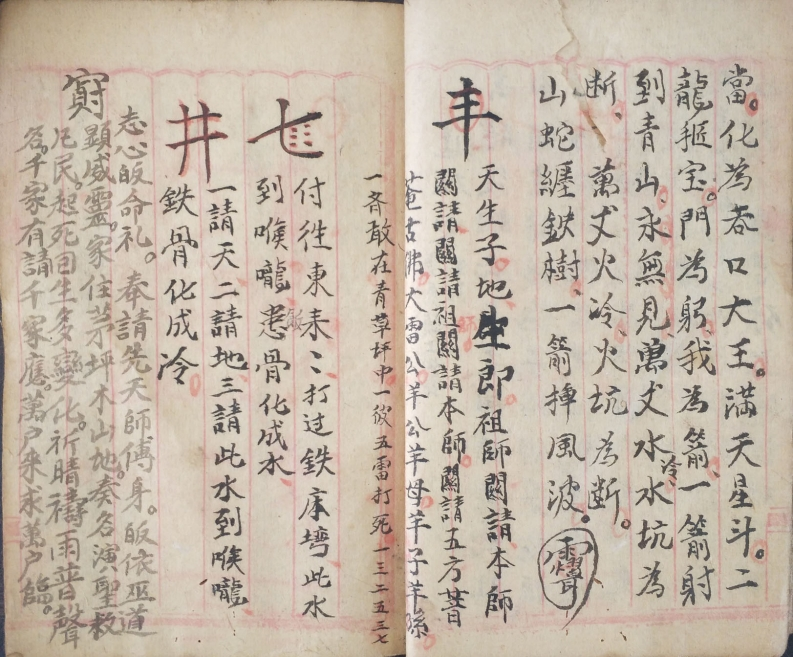 當。化為吞口大王。满天星斗。二
龍抠宝。門為躬、我為箭、一箭射
到青山、永無見、萬丈水冷、水坑為
断、萬丈火冷、火坑為断。
山蛇纏鉄樹、一箭捭風波。
丰
天生子地生郎祖師闗請本師
闗請闗請祖闗請本師闗請五方蒼
古佛大雷公羊公羊母羊子羊孫
一斉敢在青草坪中一彼五雷打死一三二五三七
七
付徃東来〻打过鉄庫塆此水
到喉嚨悲骨化成水
井
一請天二請地三請此水到喉嚨
鉄骨化成冷
志心皈命礼。奉請先天師傅身。皈依巫道
顕威靈。家住茅坪木山地。奏名演聖救
凡民。起死回生多變化。祈晴禱雨普聲
名。千家有請千家應。萬户来求萬户臨。